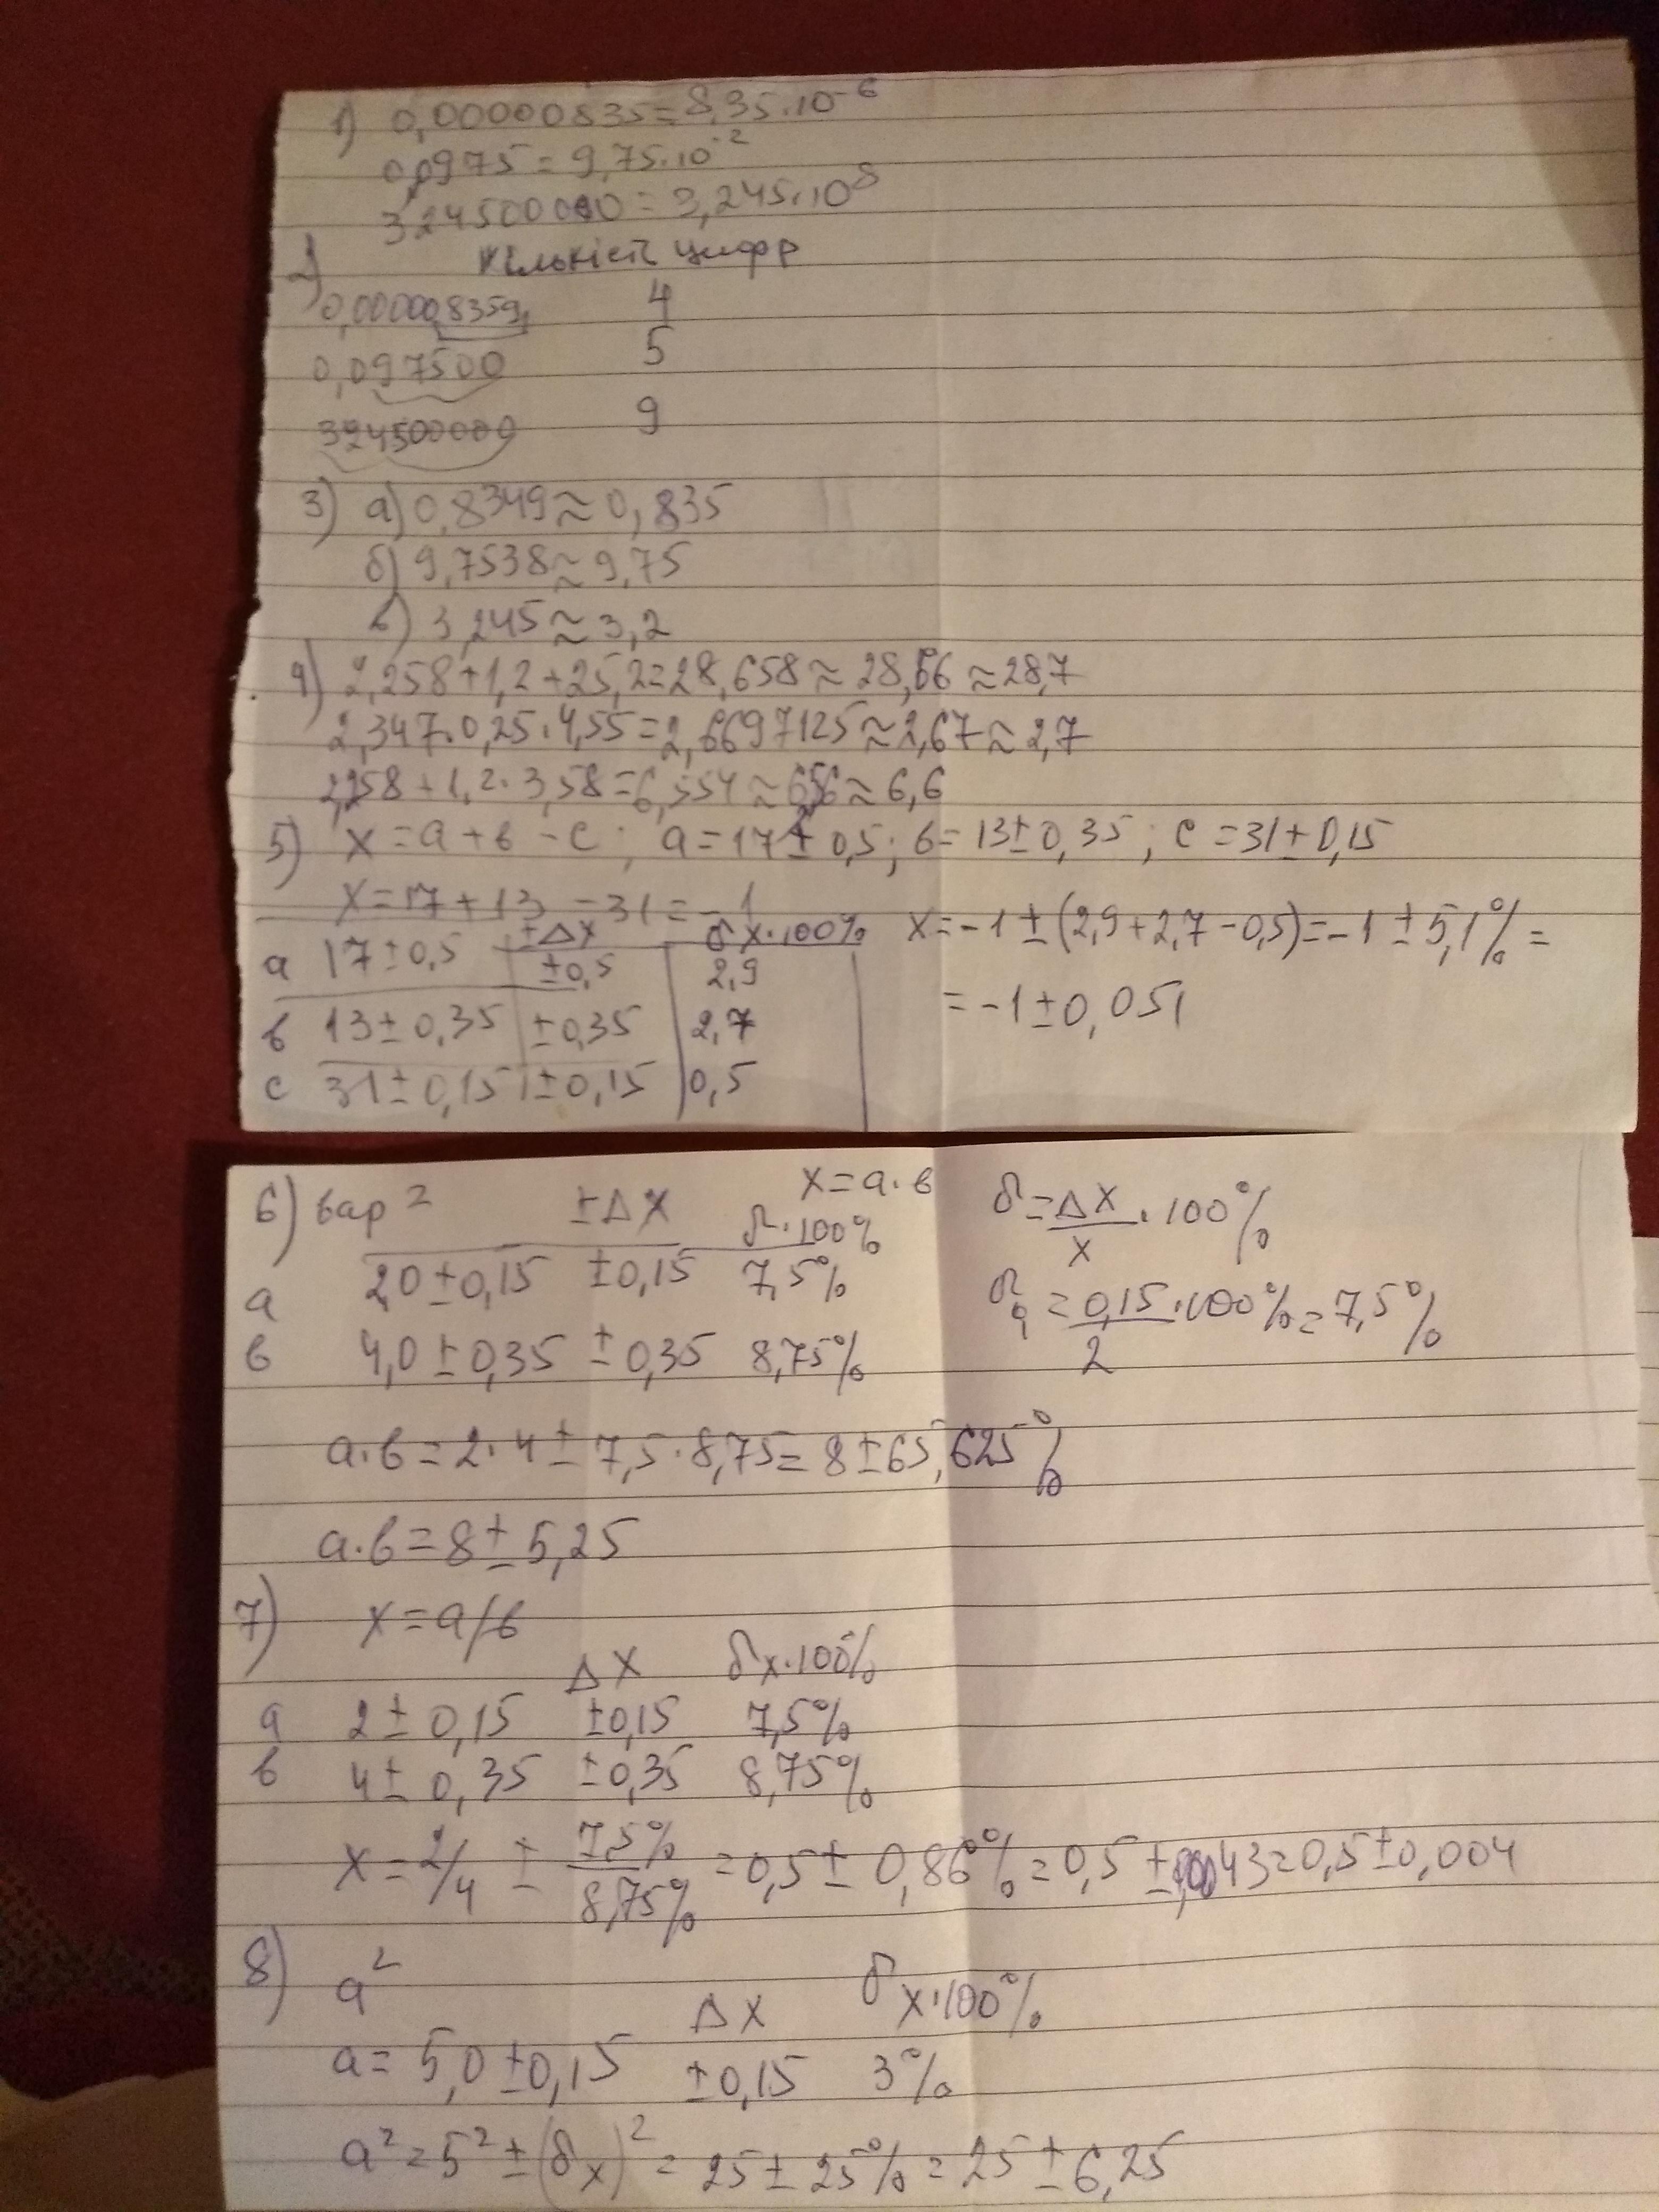 1) 0,00000835=8,35·10⁻⁶
0,0975=9,75·10⁻²
324500000=3,245·10⁸
2) Кількість цифр
0,000008359 4
0,097500 5
324500000 9
3) а) 0,8349≈0,835
б) 9,7538≈9,75
в) 3,245≈3,2
4) 2,258+1,2+25,2=28,658≈28,66≈28,7
2,347·0,25·4,55=2,6697125≈2,67≈2,7
2,258+1,2·3,58=6,554≈6,56≈6,6
5) x=a+в-c; a=17±0,5; б=13±0,35; c=31±0,15
x=17+13-31=-1
±Δx δx·100% x=-1±(2,9+2,7-0,5)=-1±5,1%=
a 17±0,5 ±0,5 2,9
=-1±0,051
в 13±0,35 ±0,35 2,7
c 31±0,15 ±0,15 0,5
6) вар 2 ±Δx x=a·в δ·100% δ=Δx/x·100%
a 2,0±0,15 ±0,15 7,5% δa=0,15/2·100%=7,5%
в 4,0±0,35 ±0,35 8,75%
a·в=2·4±7,5·8,75=8±65,625%
a·в=8±5,25
7) x=a/в
Δx δx·100%
a 2±0,15 ±0,15 7,5%
в 4±0,35 ±0,35 8,75%
x=2/4±7,5%/8,75%=0,5±0,86%=0,5±0,0043=0,5±0,004
8) a²
Δx δx·100%
a=5,0±0,15 ±0,15 3%
a²=5²±(δx)²=25±25%=25±6,25